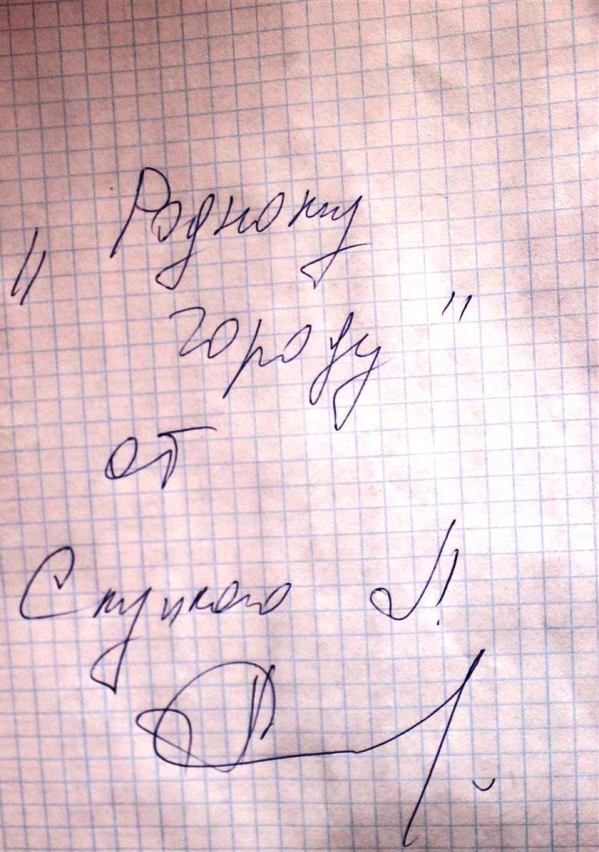 „Родному
городу"
от
Слуцкого Л.